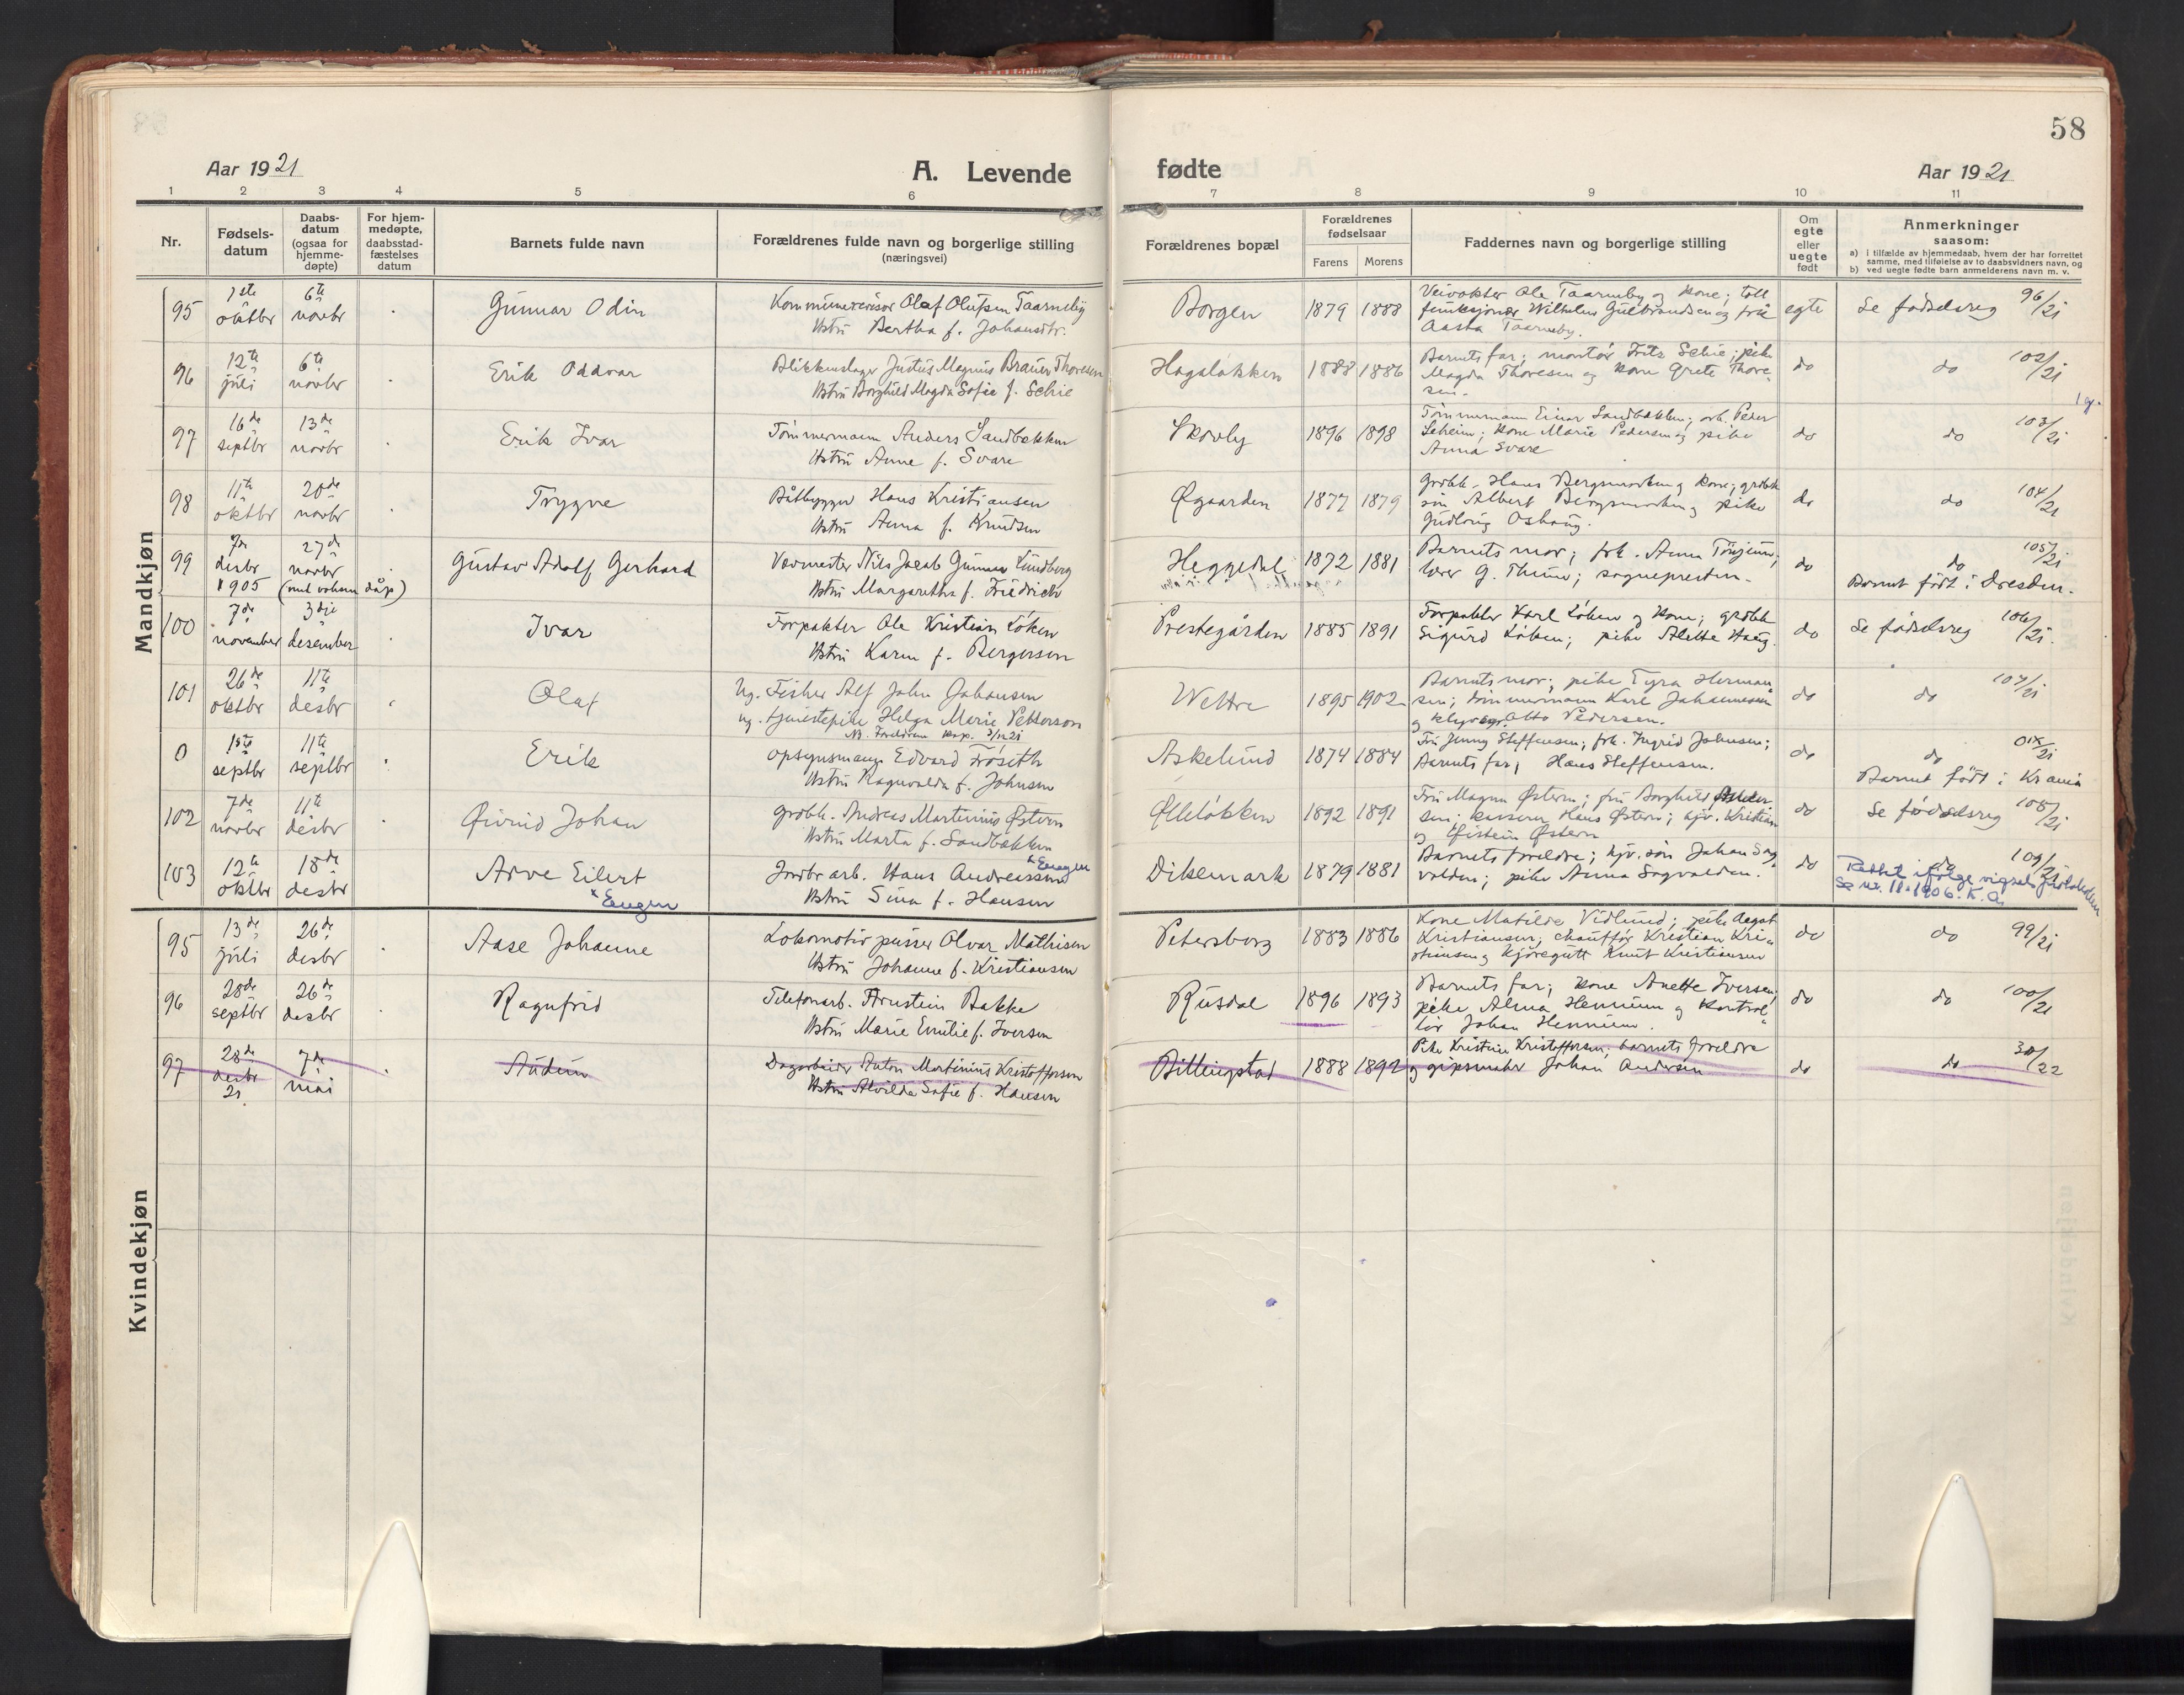 58
Aar 1921
A. Levende fødte
Aar 1921
1 2 3 4 5 6 7 8 9 10 11
Nr.
Fødsels-
datum
Daabs-
datum
(ogsaa for
hjemme-
døpte)
For hjem-
medøpte,
daabsstad-
fæstelses
datum
Barnets fulde navn
Forældrenes fulde navn og borgerlige stilling
(næringsvei)
Forældrenes bopæl
Forældrenes
fødselsaar
Farens Morens
Faddernes navn og borgerlige stilling
Om
egte
eller
uegte
født
Anmerkninger
saasom:
a) i tilfælde av hjemmedaab, hvem der har forrettet
samme, med tilføielse av to daabsvidners navn, og
b) ved uegte fødte barn anmelderens navn m. v.
Mandkjøn
95
1ste
oktbr
6te
novbr
Gunnar Odin
Kommunerevisor Olaf Olufsen Taarneby
Hstru Bertha f. Johansdtr.
Borgen
1879 1888
Veivokter Ole Taarneby og kone; toll
funksjonær Wilhelm Gulbrandsen og frk
Aasta Taarneby.
egte
Se fødselsreg 96/21
96
12te
juli
6te
novbr
Erik Oddvar
Blikkenslager Justus Magnus Brauer Thoresen
Hstru Borghild Magda Sofie f. Schie
Hagaløkken
1888 1886
Barnets far; montør Fritz Schie; pike
Magda Thoresen og kone Grete Thore-
sen.
do
do 102/21
97
16de
septbr
13de
novbr
Erik Ivar
Tømmermann Anders Sandbakken
Hstru Anne f. Svare
Skovly
1896 1898
Tømmermann Einar Sandbakken; arb. Peder
Seheim; kone Marie Pedersen og pike
Anna Svare
do
do 103/21
98
11te
oktbr
20de
novbr
Trygve
Båtbygger Hans Kristiansen
Hstru Anna f. Knudsen
Øgaarden
1877 1879
Grdbr. Hans Bergsmarken og kone; grdbr
søn Albert Bergsmarken og pike
Gudlaug Oshaug.
do
do 104/21
99
7de
desbr
1905
27de
novbr
(met voksen dåp)
Gustav Adolf Gerhard
Vævmester Nils Jacob Gunnar Lundberg
Hstru Margaretha f. Friedrich
Heggedal
1872 1881
Barnets mor; frk. Anna Tønjum;
lærer G. Thune; sognepresten.
do
do 105/21
Barnet født i Dresden.
100
7de
november
3dje
desember
Ivar
Forpakter Ole Kristian Løken
Hstru Karen f. Bergersen
Prestegården
1885 1891
Forpakter Karl Løken og kone; grdbr
Sigurd Løken; pike Alette Haug.
do
Se fødselsreg 106/21.
101
26de
oktbr
11te
desbr
Olaf
Ug. Fisker Alf John Johansen
ug. tjenestepike Helga Marie Petterson
NB. Foreldrene kop. 3/12 21
Wettre
1895 1902
Barnets mor; pike Tyra Herman-
sen; tømmermann Karl Johannessen
og Otto Pedersen.
do
do 107/21
0
1ste
septbr
11te
septbr
Erik
Opsynsmann Edvard Frøseth
Hstru Ragnvalda f. Johnsen
Askelund
1874 1884
Fru Jenny Steffensen; frk. Ingrid Johnsen;
Barnets far; Hans Steffensen.
do
do 0IX/21
Barnet født i Krania
102
7de
novbr
11te
desbr
Øivind Johan
Grdbr. Andreas Martinius Østern
Hstru Marta f. Sandbakken
Ølleløkken
1892 1891
Fru Magna Østern; fru Borghild Ander-
sen; kasserer Hans Østern; kjv. Kristian
og Øistein Østern
do
Se fødselsreg 108/21
103
12te
oktbr
18de
desbr
Arve Eilert
x Eugen
Jordbr arb. Hans Andreassen
x Eugen
Hstru Sina f. Hansen
Dikemark
1879 1881
Barnets foreldre; kjv. søn Johan Sog-
valden; pike Anna Sogvalden.
do
do 109/21
Rettet ifølge vigsel
Se nr. 11-1906. K.A.
Kvindekjøn
95
13de
juli
26de
desbr
Aase Johanne
Lokomotivpusser Olvar Mathisen
Hstru Johanne f. Kristiansen
Petersborg
1883 1886
Kone Matilde Vidlund; pike Aagot
Kristiansen; chauffør Kristian Kri-
stiansen og kjøregutt Knut Kristiansen
do
do 99/21
96
28de
septbr
26de
desbr
Ragnfrid
Telefonarb. Arnstein Bakke
Hstru Marie Emilie f. Iversen
Rusdal
1896 1893
Barnets far; kone Anette Iversen;
pike Alma Hennum og kontrol-
lør Johan Hennum.
do
do 100/21
97
28de
desbr
21
7de
mai
Audun
Dagarbeider Anton Martinius Kristoffersen
Hstru Alvilde Sofie f. Hansen
Billingstad
1888 1892
Pike Kristine Kristoffersen; barnets foreldre
og gipsmaker Johan Andersen
do
do 30/22